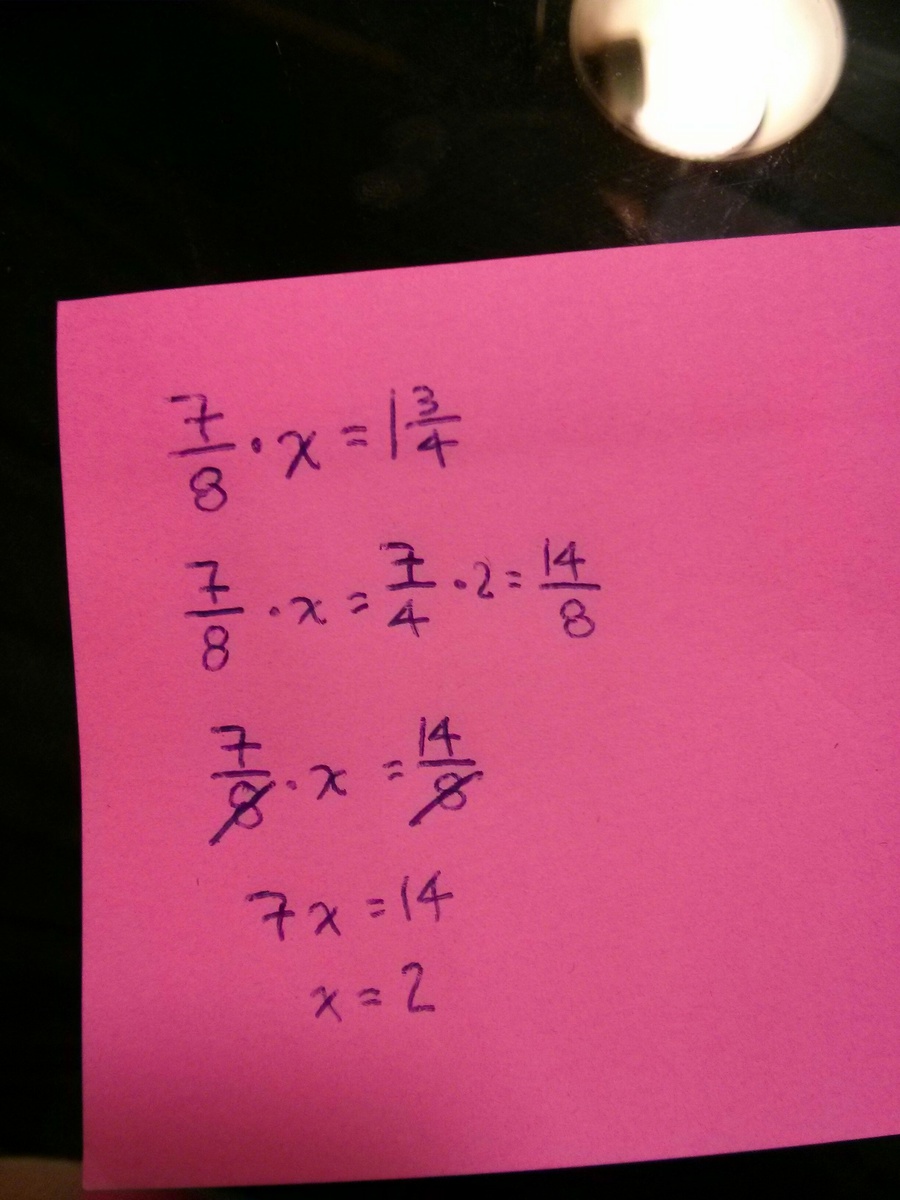 7/8 · x = 1 3/4
7/8 · x = 7/4 · 2 = 14/8
7/8 · x = 14/8
7x = 14
x = 2